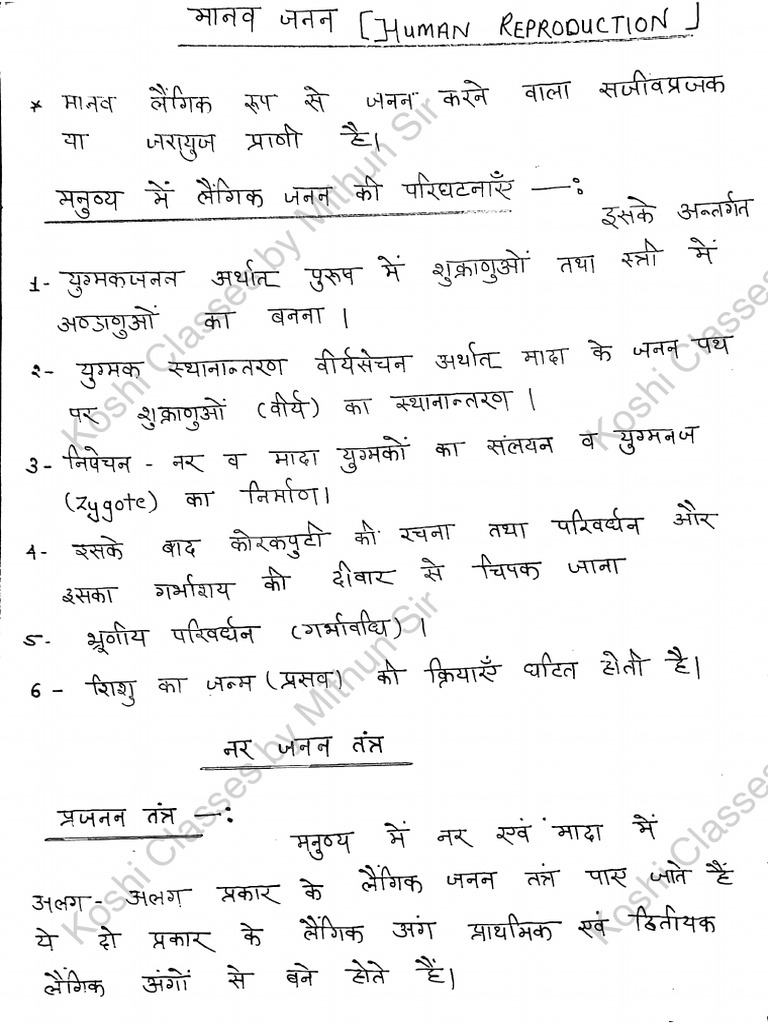 मानव जनन [HUMAN REPRODUCTION]
* मानव लैंगिक रूप से जनन करने वाला सजीवप्रजक
या जरायुज प्राणी है।
मनुष्य में लैंगिक जनन की परिघटनाएँ —:
इसके अन्तर्गत
1- युग्मकजनन अर्थात् पुरुष में शुक्राणुओं तथा स्त्री में
अण्डाणुओं का बनना।
2- युग्मक स्थानान्तरण वीर्यसेचन अर्थात् मादा के जनन पथ
पर शुक्राणुओं (वीर्य) का स्थानान्तरण।
3- निषेचन - नर व मादा युग्मकों का संलयन व युग्मनज
(zygote) का निर्माण।
4- इसके बाद कोरकपुटी की रचना तथा परिवर्धन और
इसका गर्भाशय की दीवार से चिपक जाना
5- भ्रूणीय परिवर्धन (गर्भावधि)।
6 - शिशु का जन्म (प्रसव) की क्रियाएँ घटित होती है।
नर जनन तंत्र
प्रजनन तंत्र —:
मनुष्य में नर एवं मादा में
अलग - अलग प्रकार के लैंगिक जनन तंत्र पाए जाते हैं
ये दो प्रकार के लैंगिक अंग प्राथमिक एवं द्वितीयक
लैंगिक अंगों से बने होते हैं।
Koshi Classes by Mithun Sir
Koshi Classes
Koshi Classes by Mithun Sir
Koshi Classes